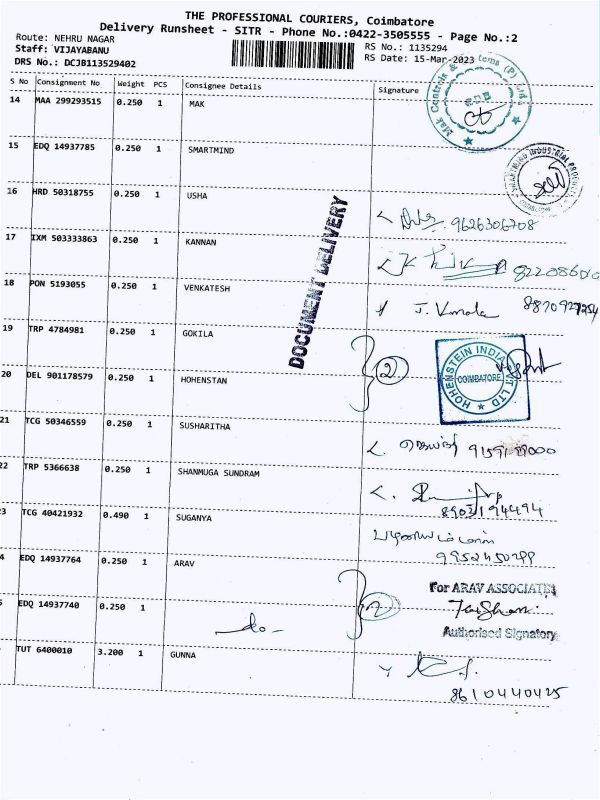 THE PROFESSIONAL COURIERS, Coimbatore
Delivery Runsheet - SITR - Phone No.:0422-3505555 - Page No.:2
Route: NEHRU NAGAR
Staff: VIJAYABANU
DRS No.: DCJB113529402
RS No.: 1135294
RS Date: 15-Mar-2023
S No Consignment No Weight PCS Consignee Details Signature
14 MAA 299293515 0.250 1 MAK
Mak Controls & Systems (P) Ltd
15 EDQ 14937785 0.250 1 SMARTMIND
16 HRD 50318755 0.250 1 USHA
9626306708
17 IXM 503333863 0.250 1 KANNAN
18 PON 5193055 0.250 1 VENKATESH
DOCUMENT DELIVERY
19 TRP 4784981 0.250 1 GOKILA
2
20 DEL 901178579 0.250 1 HOHENSTAN
HOHENSTEIN INDIA PVT LTD
COIMBATORE
21 TCG 50346559 0.250 1 SUSHARITHA
22 TRP 5366638 0.250 1 SHANMUGA SUNDRAM
3 TCG 40421932 0.490 1 SUGANYA
4 EDQ 14937764 0.250 1 ARAV
For ARAV ASSOCIATES
5 EDQ 14937740 0.250 1
-do-
2
Authorised Signatory
TUT 6400010 3.200 1 GUNNA
8610440425